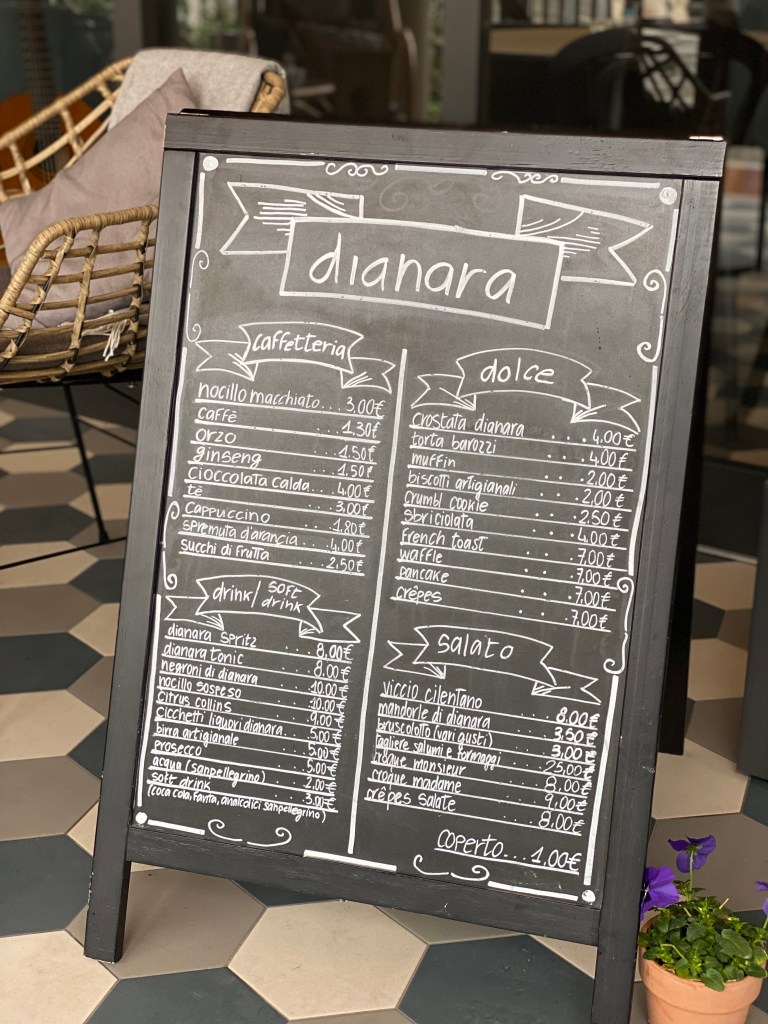 dianara
caffetteria
nocillo macchiato... 3,00€
caffè . . . 1,30€
orzo . . . 1,50€
ginseng . . . 1,50€
cioccolata calda... 4,00€
tè . . . 3,00€
cappuccino . . . 1,80€
spremuta d'arancia . . . 4,00€
succhi di frutta . . . 2,50€
drink/ soft drink
dianara spritz . . . 8,00€
dianara tonic . . . 8,00€
negroni di dianara . . . 10,00€
nocillo sospeso . . . 10,00€
citrus collins . . . 9,00€
cicchetti liquori dianara . . . 5,00€
birra artigianale . . . 5,00€
prosecco . . . 5,00€
acqua (sanpellegrino) . . . 2,00€
soft drink . . . 3,00€
(coca cola, fanta, analcolici sanpellegrino)
dolce
crostata dianara . . . 4,00€
torta barozzi . . . 4,00€
muffin . . . 2,00€
biscotti artigianali . . . 2,00€
crumbl cookie . . . 2,50€
sbriciolata . . . 4,00€
french toast . . . 7,00€
waffle . . . 7,00€
pancake . . . 7,00€
crêpes . . . 7,00€
salato
viccio cilentano . . . 8,00€
mandorle di dianara . . . 3,50€
bruscolotto (vari gusti) . . . 3,00€
tagliere salumi e formaggi . . . 25,00€
croque monsieur . . . 8,00€
croque madame . . . 9,00€
crêpes salate . . . 8,00€
coperto... 1,00€